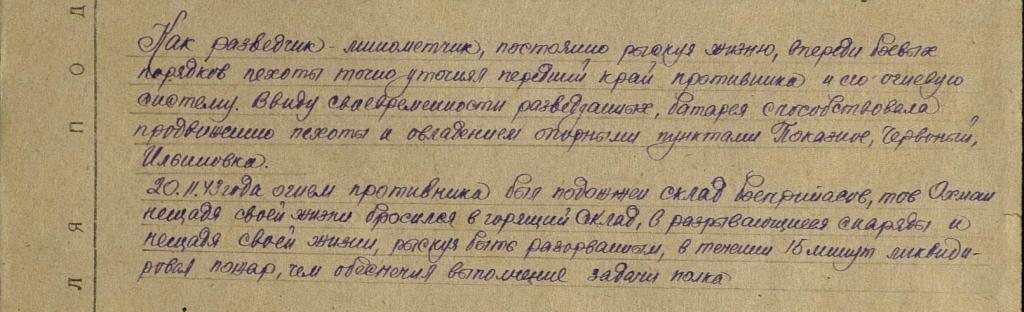 Как разведчик-минометчик, постоянно рыскуя жизню, впереди боевых
порядков пехоты точно уточнял передний край противника и его огневую
систему. Ввиду своевременности разведданных, батарея способствовала
продвижению пехоты и овладением опорными пунктами Показное, Червоный,
Ильиновка.
20.11.43 года огнем противника был подожжен склад боеприпасов, тов Охман
нещадя своей жизни бросился в горящий склад, в разрывающиеся снаряды и
нещадя своей жизни, рыскуя быть разорванным, в течении 15 минут ликвиди-
ровал пожар, чем обеспечил выполнение задачи полка
Л Я П О Д